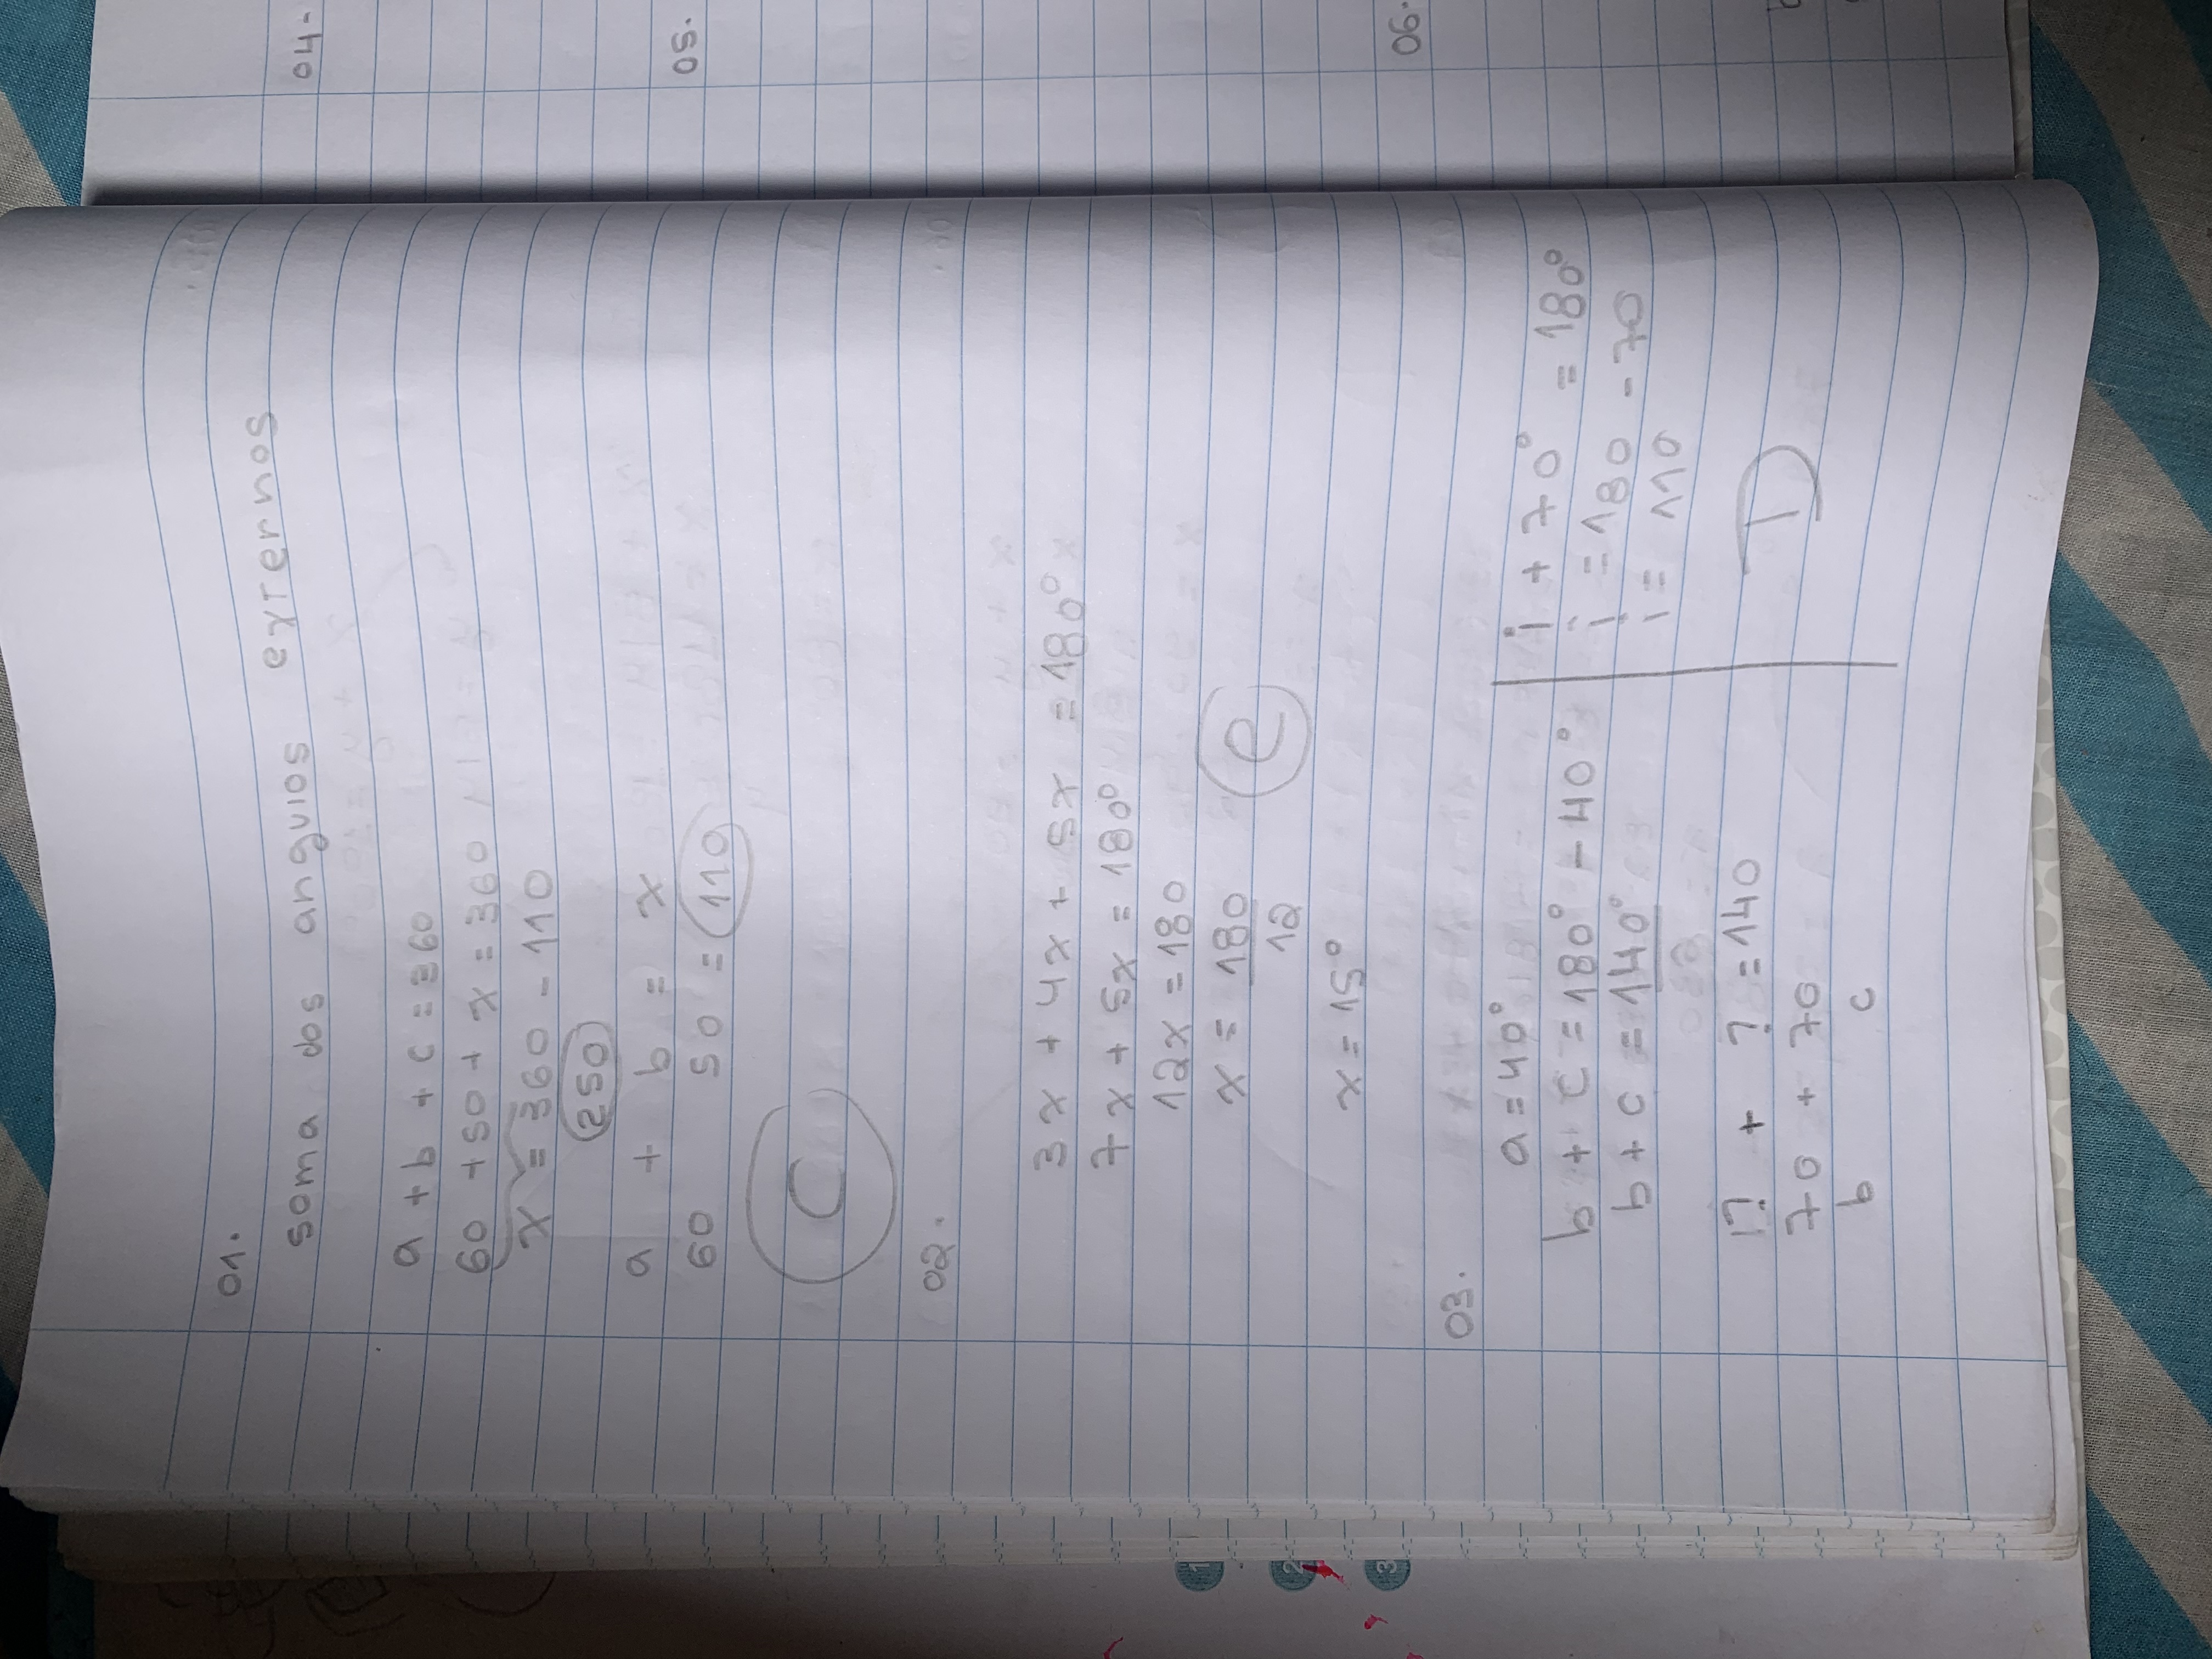 01.
soma dos anguios externos
a + b + c = 360
60 + 50 + x = 360
x = 360 - 110
250
a + b = x
60 50 = 110
C
02.
3x + 4x + 5x = 180°
7x + 5x = 180°
12x = 180
x = 180
12
e
x = 15°
03.
a = 40°
b + c = 180° - 40°
b + c = 140°
? + ? = 140
70 + 70
b c
i + 70° = 180°
i = 180 - 70
i = 110
D
04-
05.
06.
1
2
3